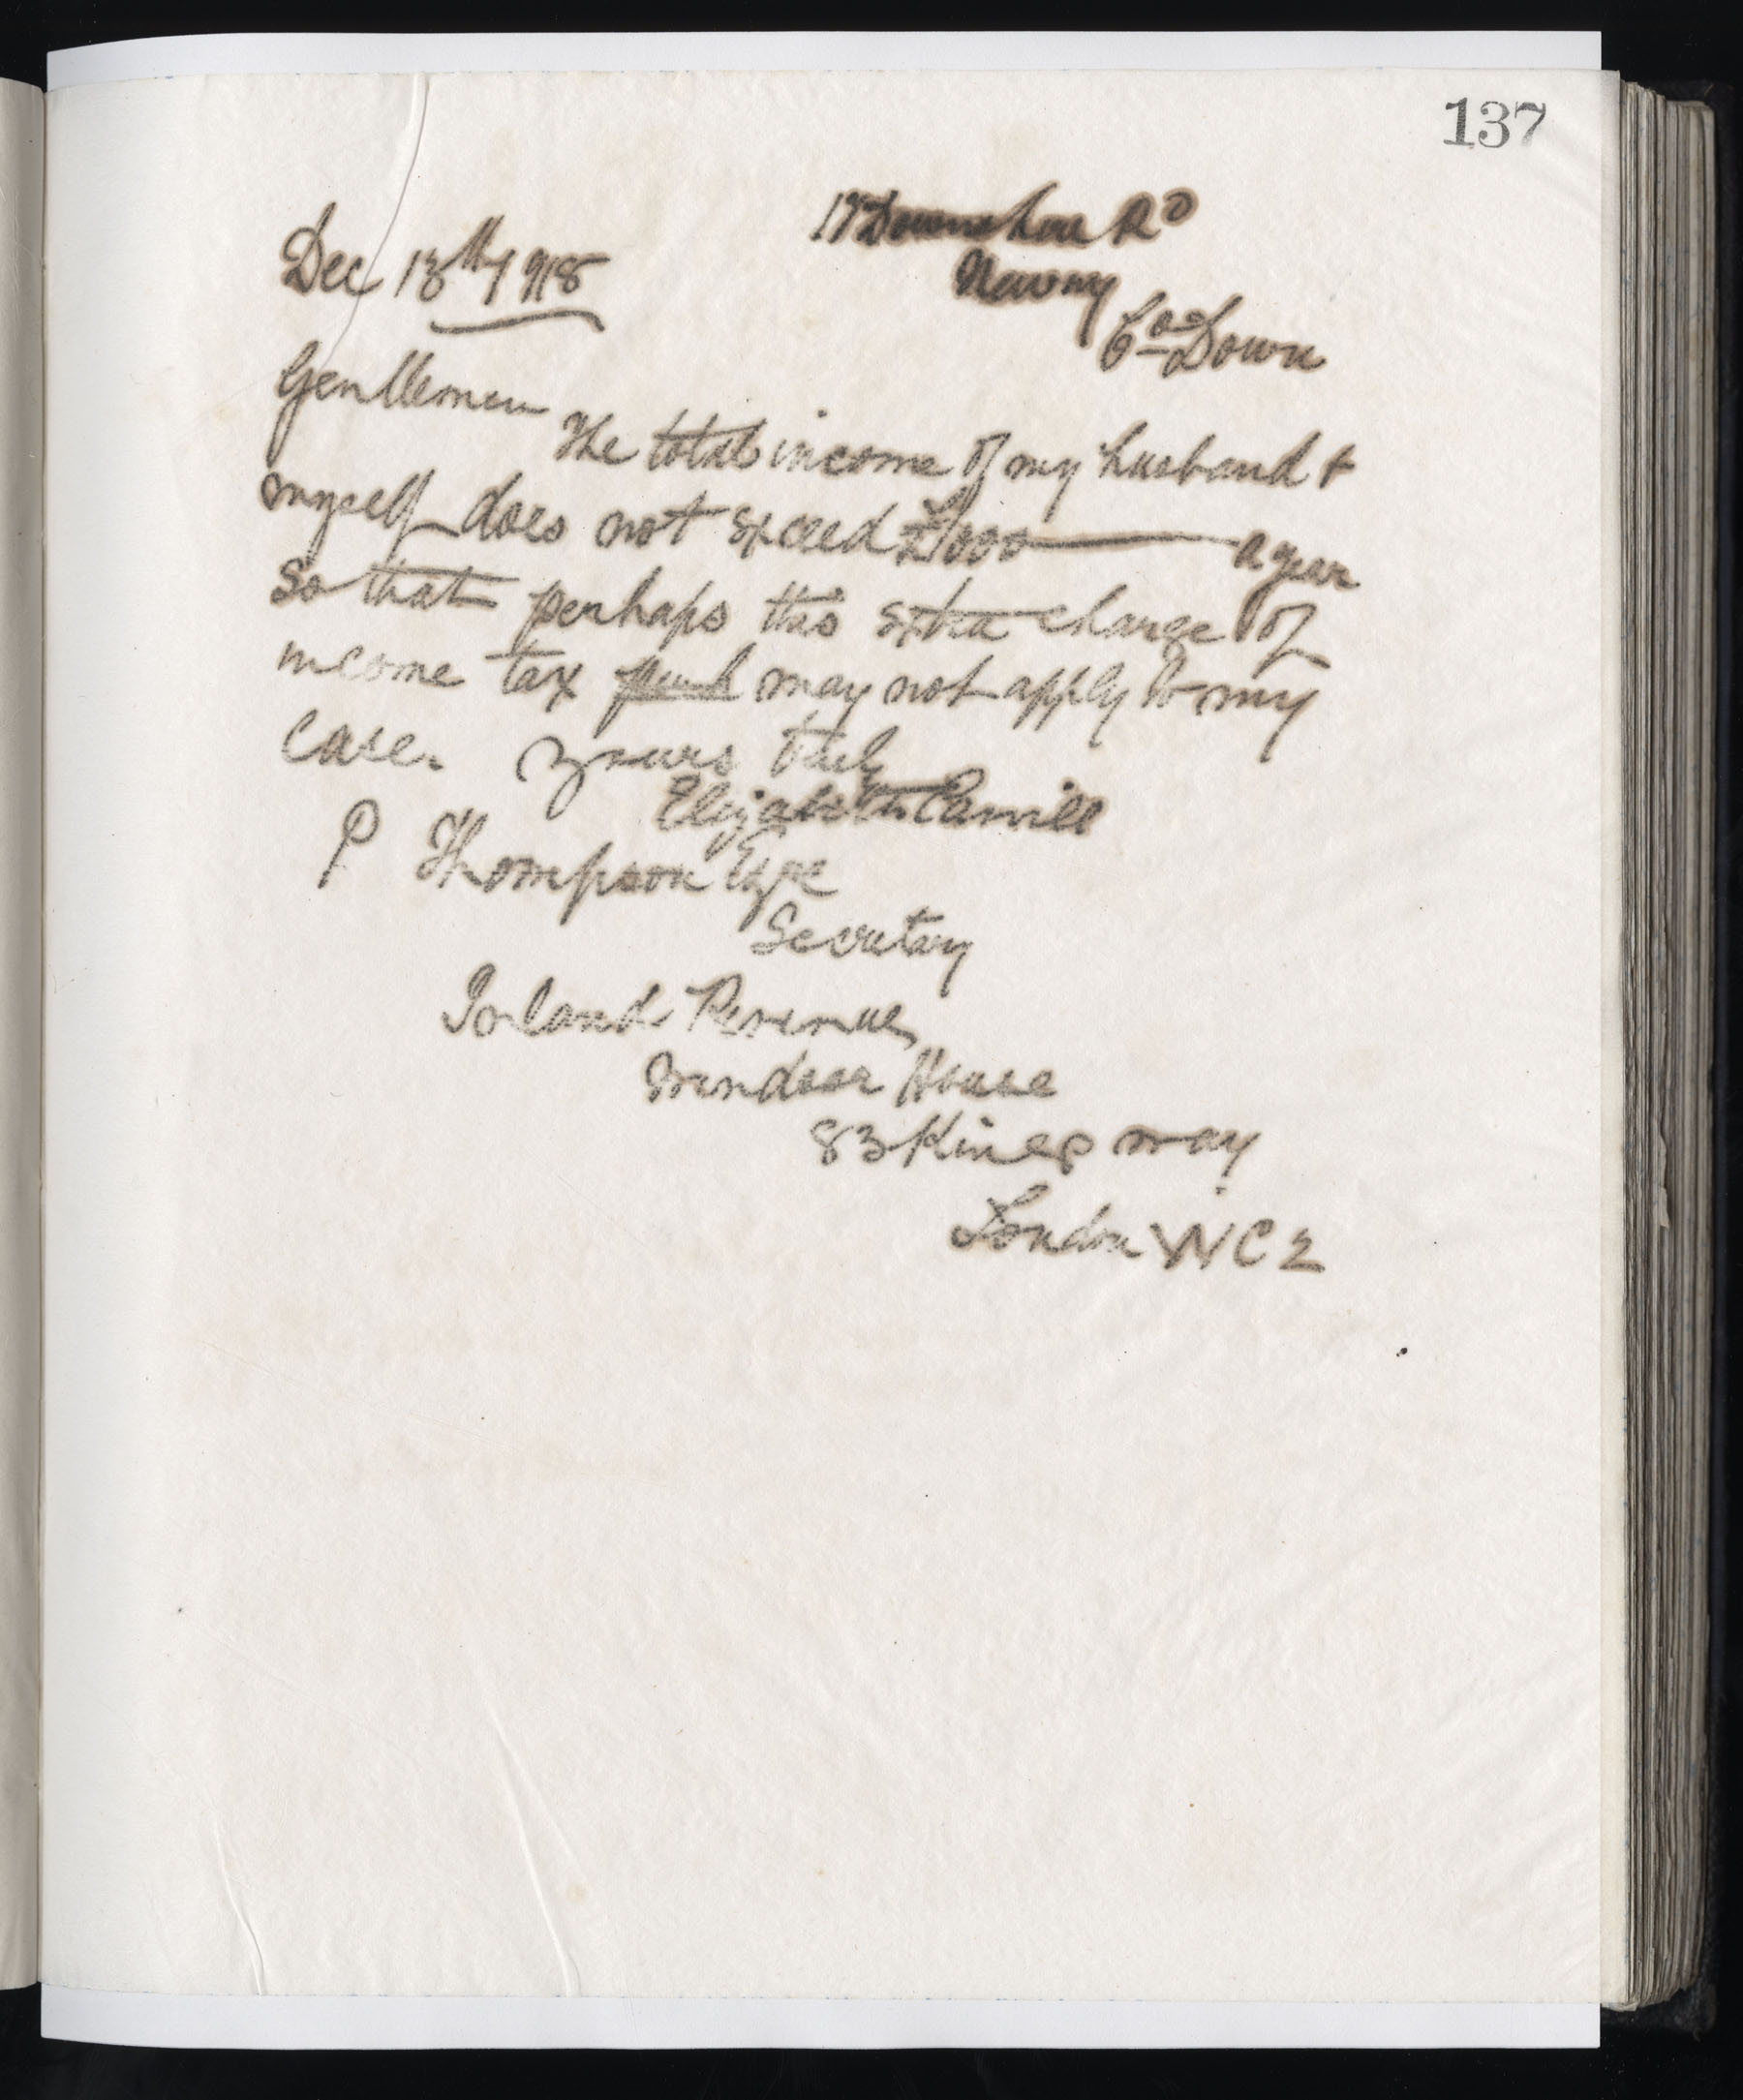 137
Downshire Rd
Dec 13th 1918
Newry
Co Down
Gentlemen
The total income of my husband &
myself does not exceed £1000 a year
So that perhaps this extra charge of
income tax may not apply to my
case. Yours truly
Elizabeth Carvill
P Thompson Esqre
Secretary
Inland Revenue,
Windsor House
83 Kings way
London WC2